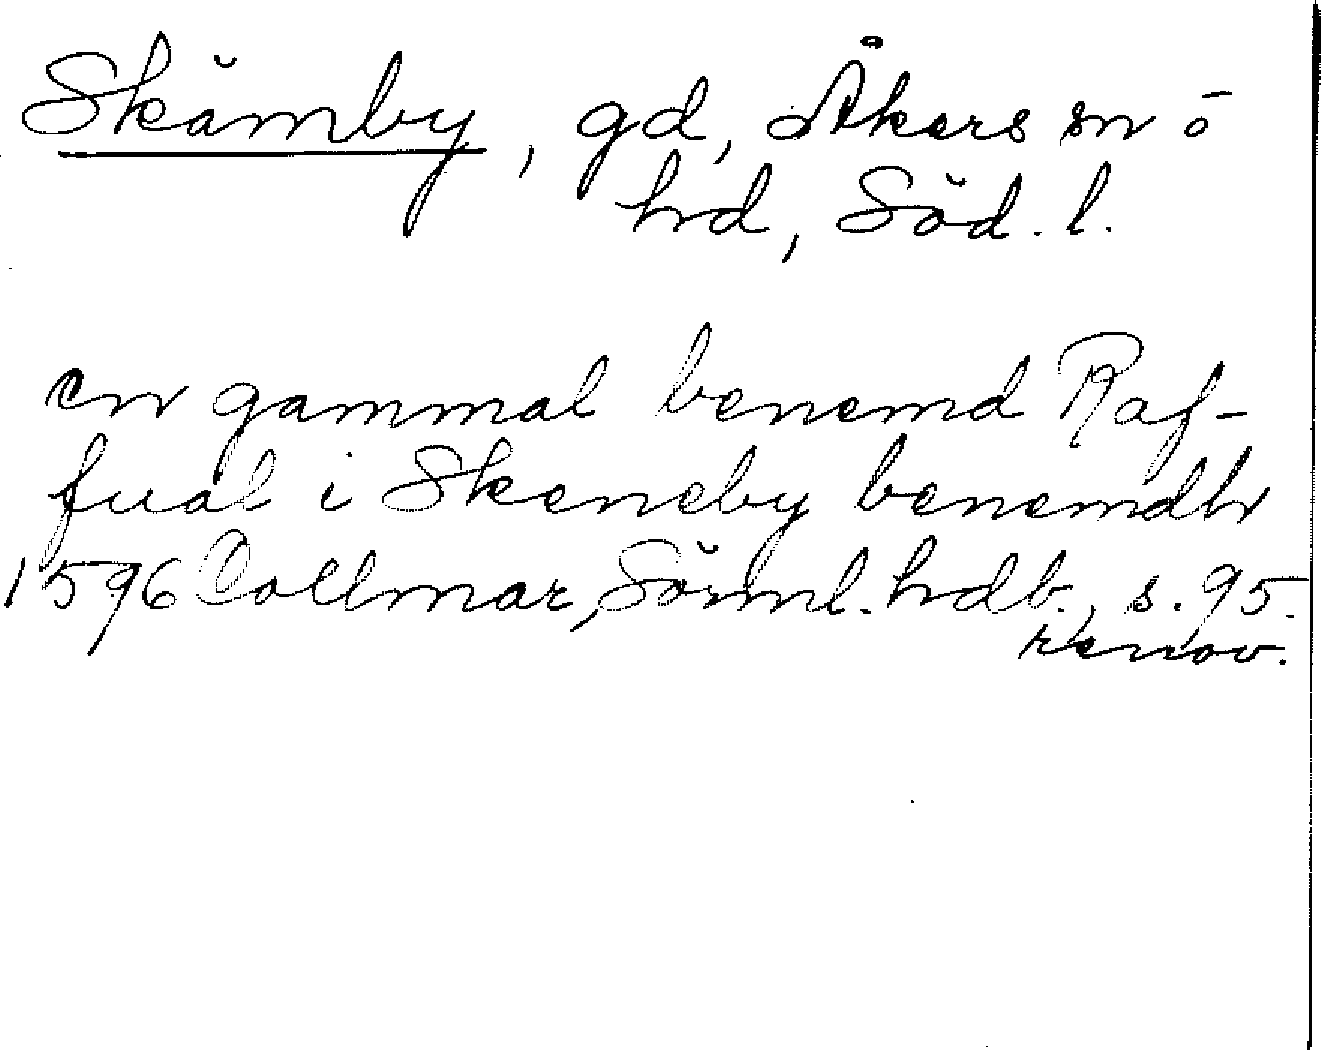 Skämby, gd, Åkers sn o
hd, Söd. l.
en gammal benemd Raf-
fual i Skeneby benemdh
1596 Collmar, Sörml. hdb., s. 95.
renov.